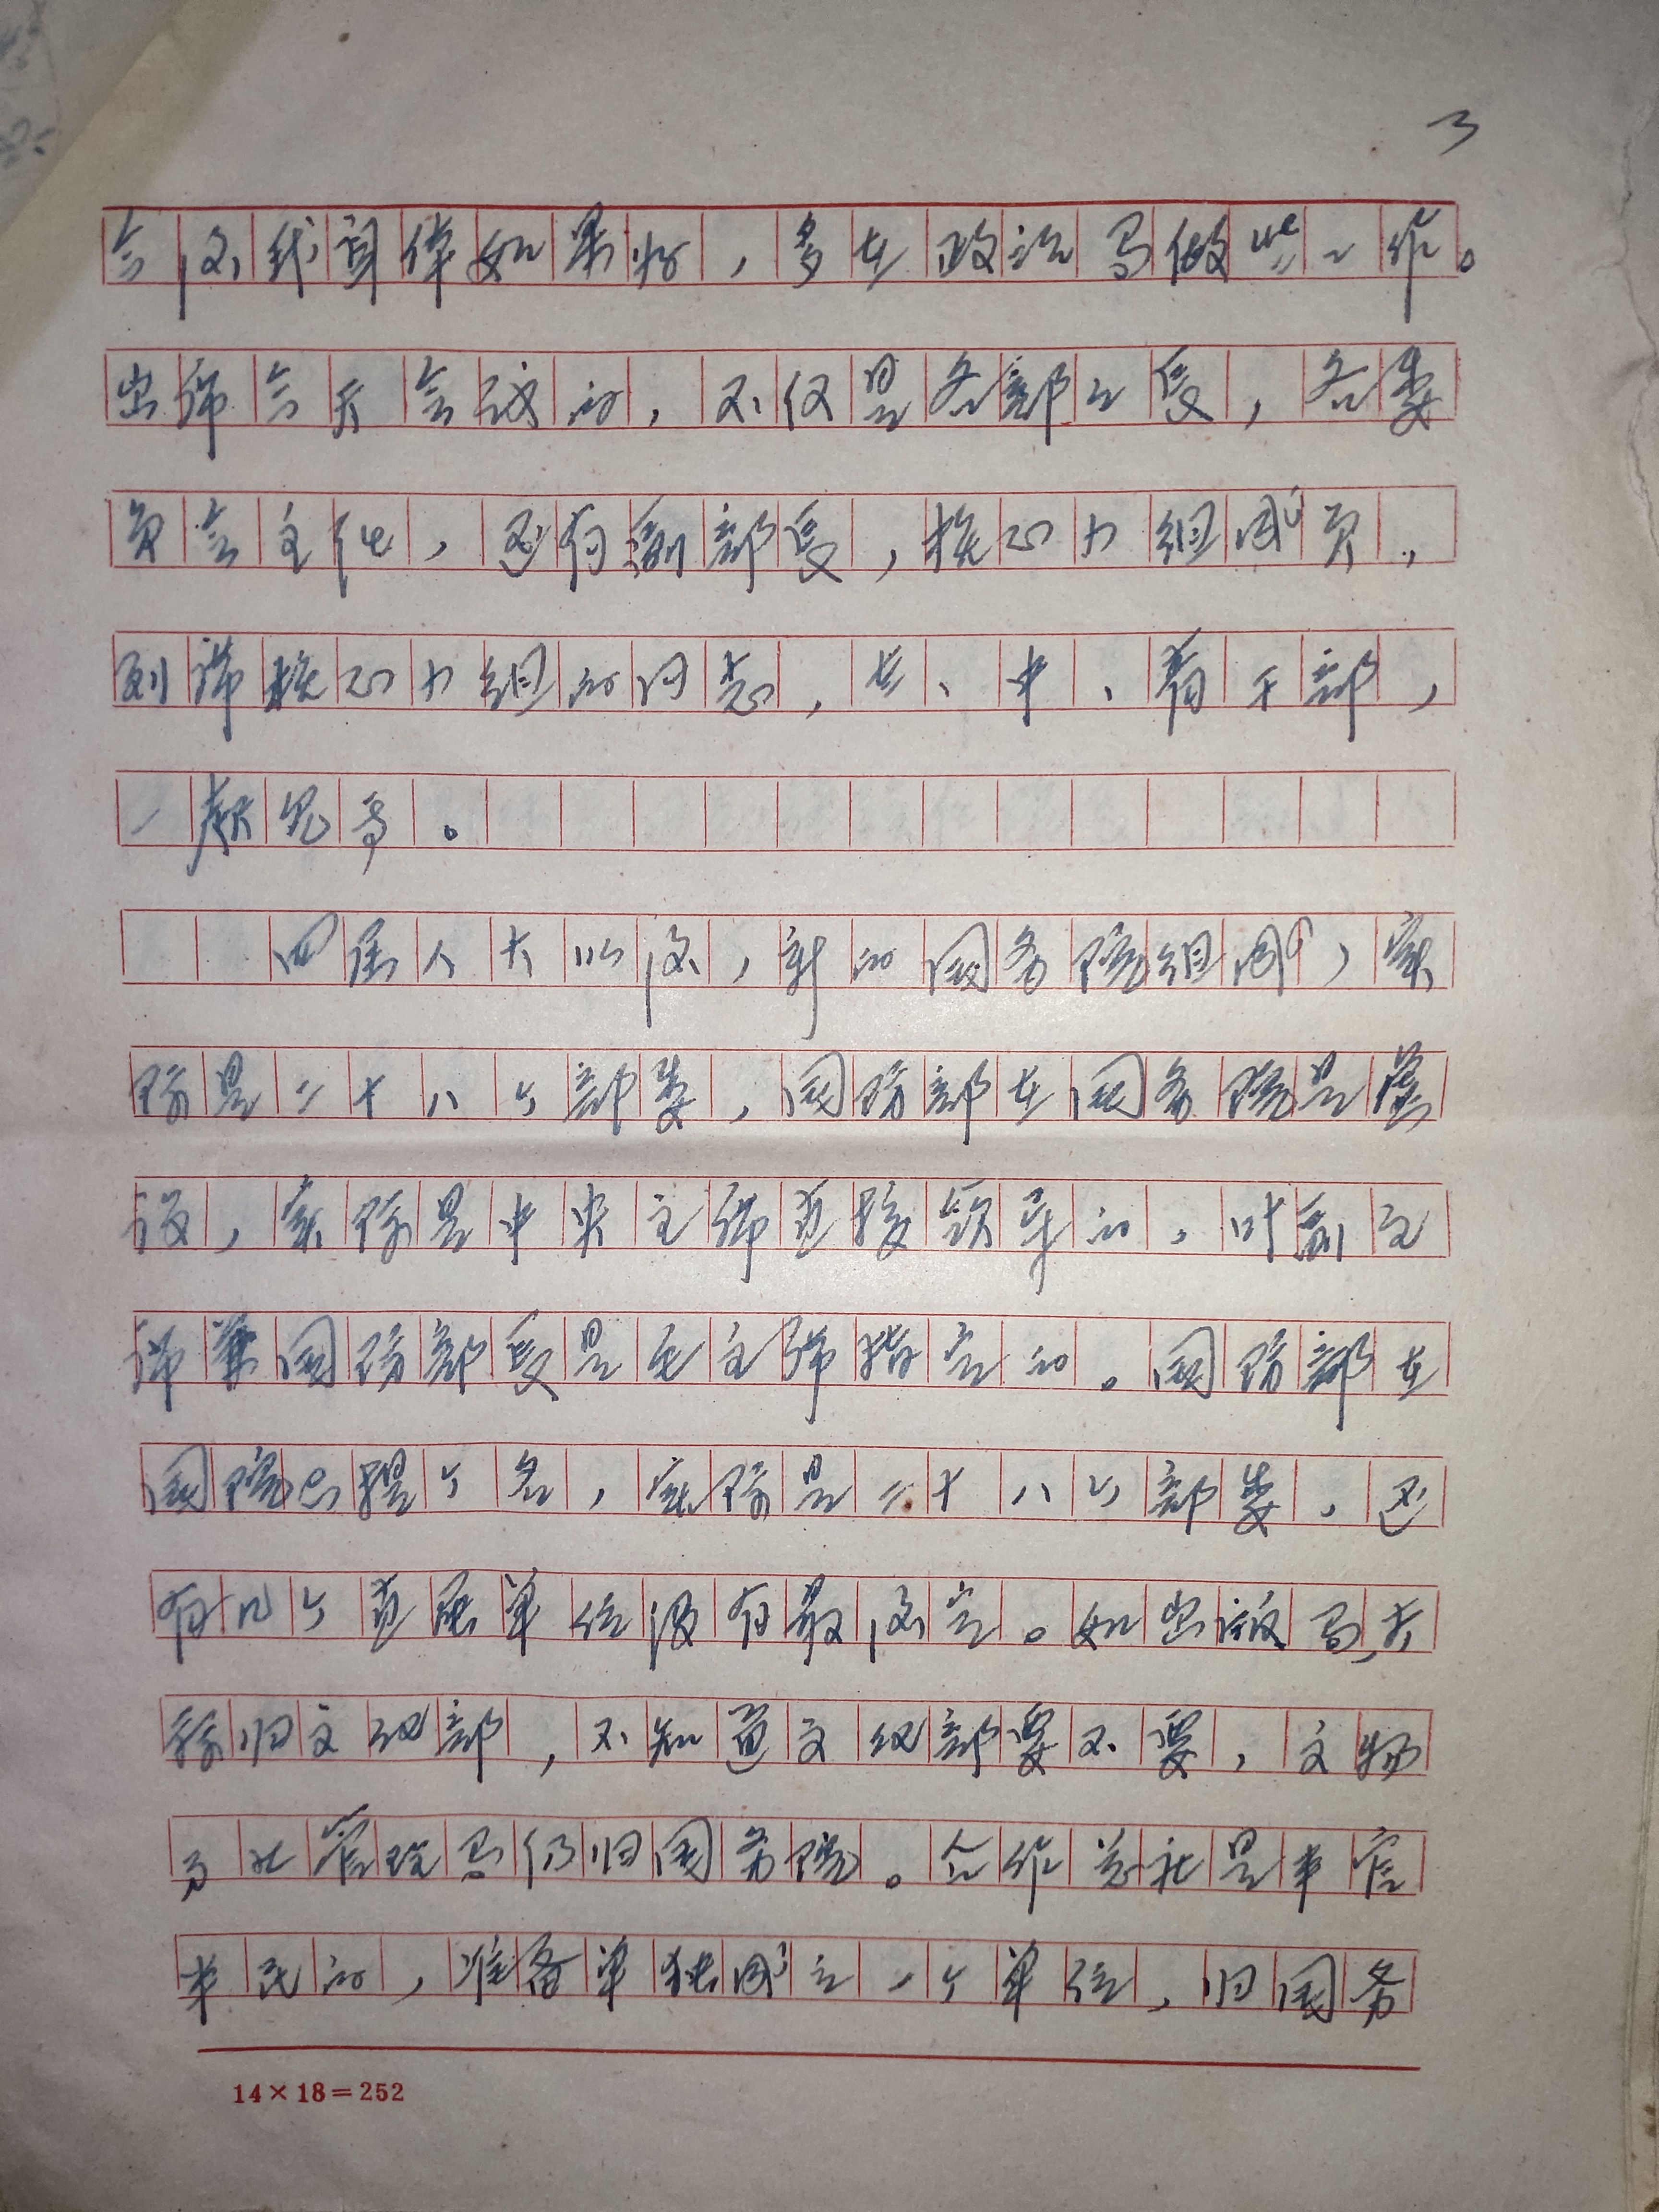 3
会后我身体如果好，多在政治局做些工作。
出席今天会议的，不仅是各部部长，各委
员会主任，还有副部长，核心小组成员，
列席核心小组的同志，老、中、青干部，
一起见了。
四届人大以后，新的国务院组成，实
际是二十八个部委，国防部在国务院是虚
设，实际是中央主席直接领导的，叶副主
席兼国防部长是毛主席指定的。国防部在
国院已提个名，实际是二十八个部委，还
有几个直属单位没有最后定。如出版局大
家归文化部，不知道文化部要不要，文物
事业管理局仍归国务院。合作总社是半官
半民的，准备单独成立一个单位，归国务
14×18=252